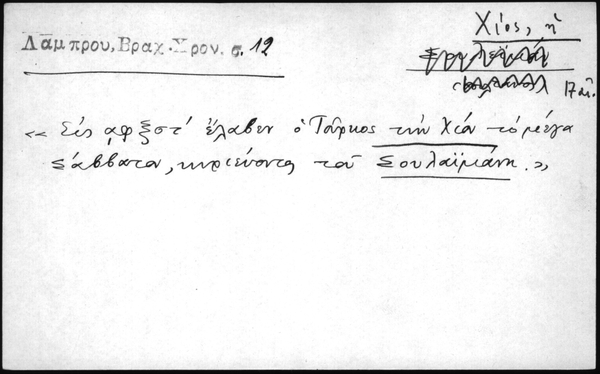 Λάμπρου, Βραχ. Χρον. σ. 12
Χίος, ἡ
17 αἰ.
« Εἰς αφξστ' ἔλαβεν ὁ Τοῦρκος τὴν Χίο τὸ μέγα
σάββατο, κυριεύοντας τοῦ Σουλαϊμάνη. »